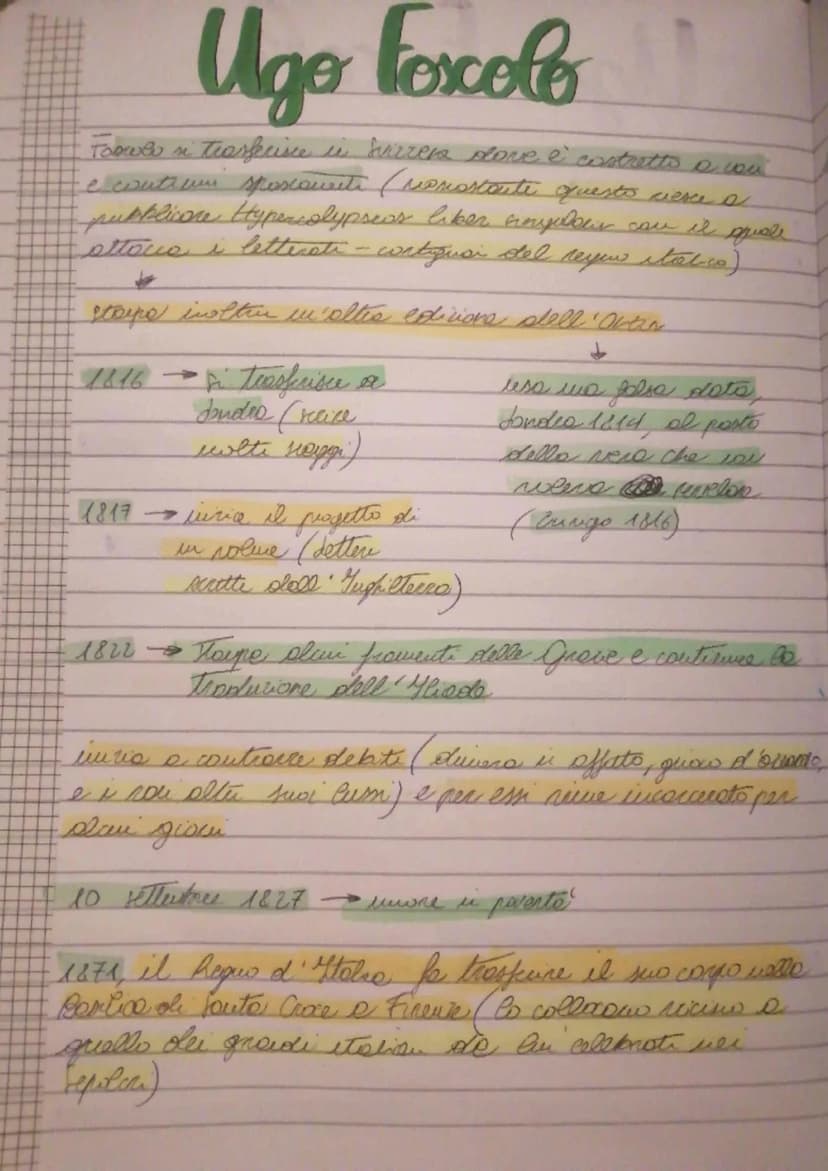 Ugo Foscolo
Foscolo si trasferisce in Svizzera dove è costretto a vari
e continui spostamenti (nonostante questo riesce a
pubblicare Hypercalypseos liber singularis con il quale
attacca i letterati - cortigiani del regno italico)
↓
stampa inoltre un'altra edizione dell'Ortis
↓
1816 → si trasferisce a
Londra (scrive
molti saggi)
usa una falsa data,
Londra 1814, al posto
della vera che non
voleva rivelare
(Zurigo 1816)
1817 → inizia il progetto di
un volume (Lettere
scritte dall'Inghilterra)
1822 → stampa alcuni frammenti delle Grazie e continua la
traduzione dell'Iliade
inizia a contrarre debiti (dimora in affitto, gioco d'azzardo,
e i vari altri suoi lussi) e per essi viene incarcerato per
alcuni giorni
10 settembre 1827 → muore in povertà
1871, il Regno d'Italia fa trasferire il suo corpo nella
Basilica di Santa Croce a Firenze (lo collocano vicino a
quello dei grandi italiani da lui celebrati nei
Sepolcri)